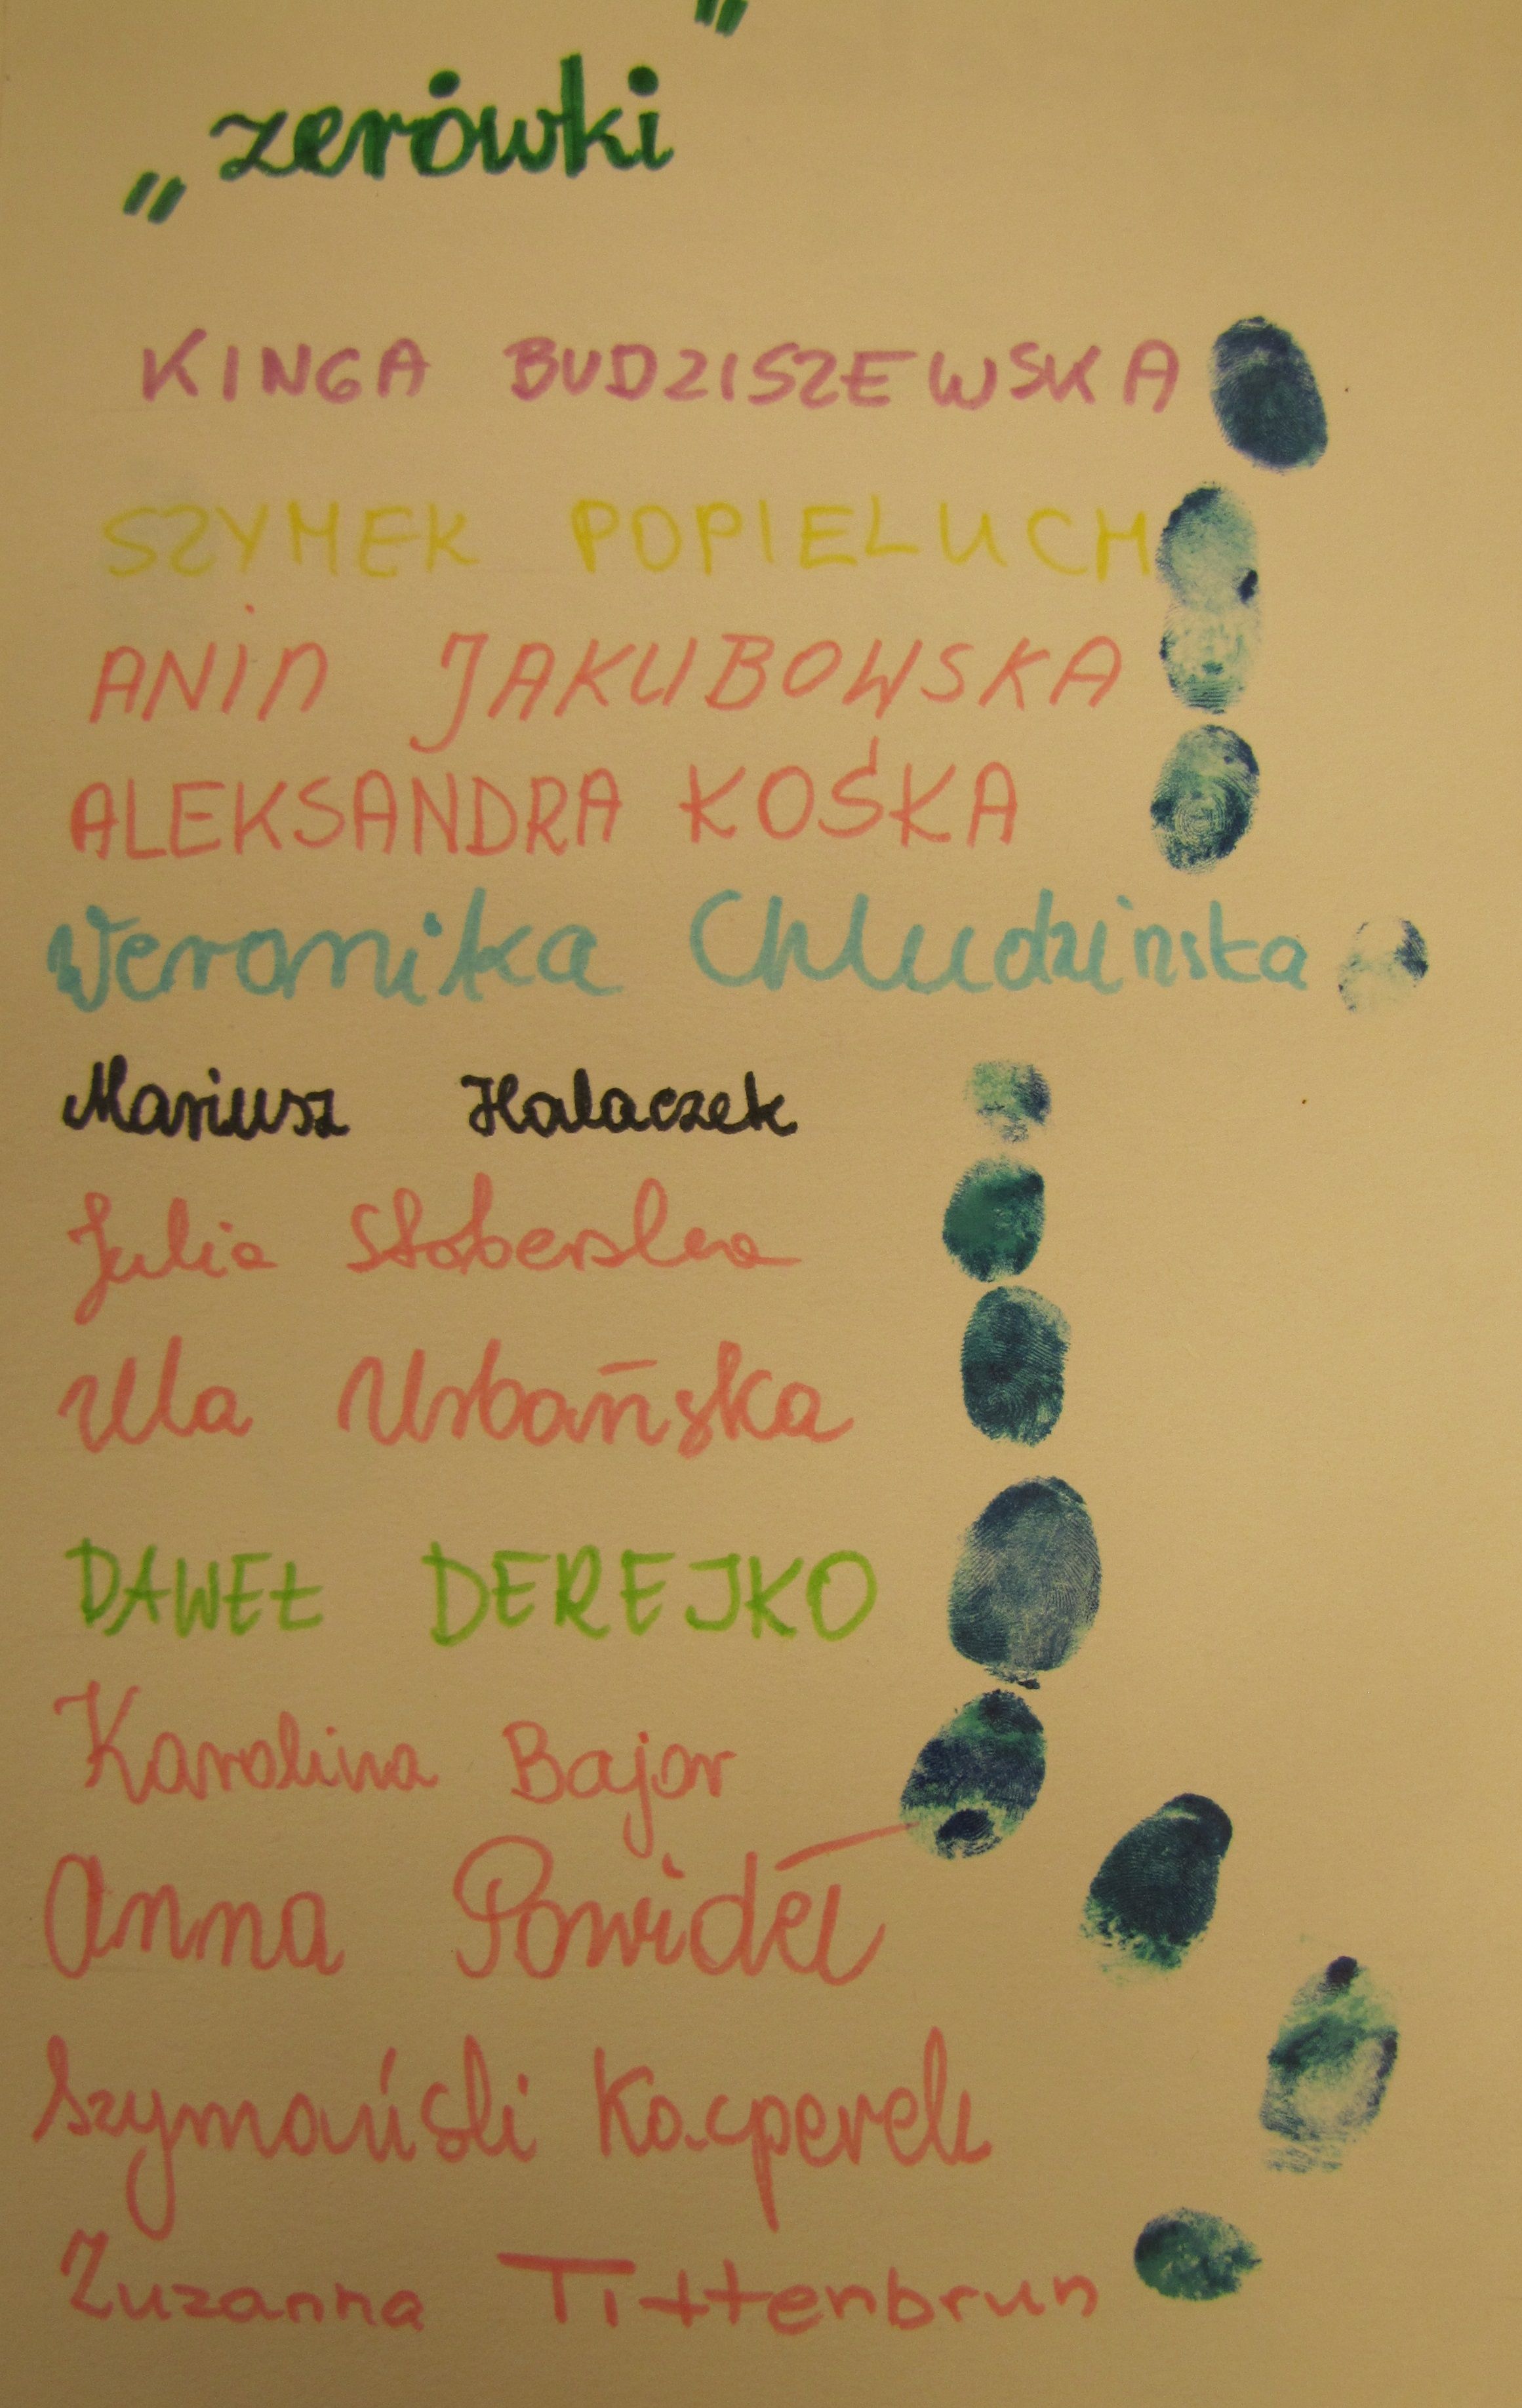 "
„zerówki
KINGA BUDZISZEWSKA
SZYMEK POPIELUCH
ANIA JAKUBOWSKA
ALEKSANDRA KOŚKA
Weronika Chludzinska
Mariusz Halaczek
Julia
Ula Urbańska
DAWEŁ DEREJKO
Karolina Bajor
Anna Powideł
Szymański Kacperek
Zuzanna Tittenbrun